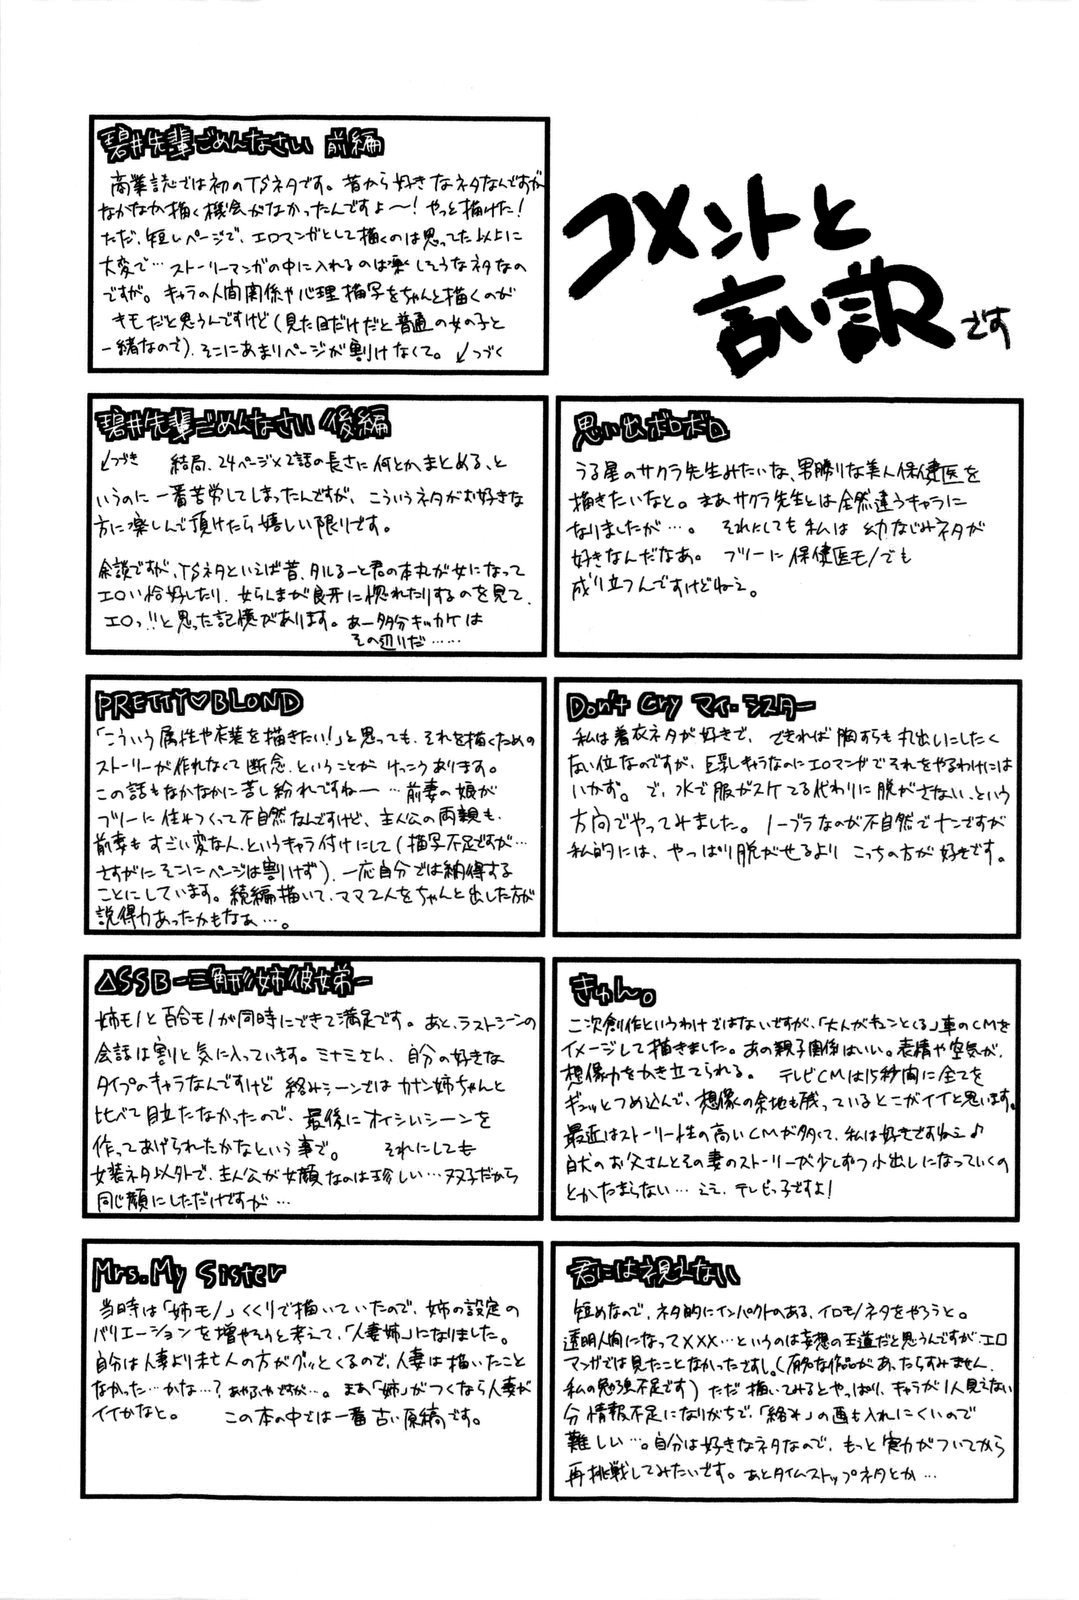 コメントと
言い訳です
碧井先輩ごめんなさい 前編
商業誌では初のTSネタです。昔から好きなネタなんですが
なかなか描く機会がなかったんですよ〜！やっと描けた！
ただ、短いページで、エロマンガとして描くのは思ってた以上に
大変で…ストーリーマンガの中に入れるのは楽しそうなネタなの
ですが。キャラの人間関係や心理描写をちゃんと描くのが
キモだと思うんですけど（見た目だけだと普通の女の子と
一緒なので）、そこにあまりページが割けなくて。↙つづく
碧井先輩ごめんなさい 後編
↙つづき 結局、24ページ×2話の長さに何とかまとめる、と
いうのに一番苦労してしまったんですが、こういうネタがお好きな
方に楽しんで頂けたら嬉しい限りです。
余談ですが、TSネタといえば昔、タルるーと君の本丸が女になって
エロい恰好したり、女らんまが良牙に惚れたりするのを見て、
エロっ!!と思った記憶があります。あー多分キッカケは
その辺りだ……
思い出ボロボロ
うる星のサクラ先生みたいな、男勝りな美人保健医を
描きたいなと。まあサクラ先生とは全然違うキャラに
なりましたが…。それにしても私は幼なじみネタが
好きなんだなあ。フツーに保健医モノでも
成り立つんですけどねぇ。
PRETTY♡BLOND
「こういう属性や衣装を描きたい！」と思っても、それを描くための
ストーリーが作れなくて断念、ということがけっこうあります。
この話もなかなかに苦し紛れですねー…前妻の娘が
フツーに住みつくって不自然なんですけど、主人公の両親も、
前妻もすごい変な人、というキャラ付けにして（描写不足ですが…
さすがにそこにページは割けず）、一応自分では納得する
ことにしています。続編描いて、ママ2人をちゃんと出した方が
説得力あったかもなぁ…。
Don't Cry マイ・シスター
私は着衣ネタが好きで、できれば胸すらも丸出しにしたく
ない位なのですが、巨乳キャラなのにエロマンガでそれをやるわけには
いかず。で、水で服がスケてる代わりに脱がさない、という
方向でやってみました。ノーブラなのが不自然でナンですが
私的には、やっぱり脱がせるよりこっちの方が好きです。
△SSB－三角形姉彼弟－
姉モノと百合モノが同時にできて満足です。あと、ラストシーンの
会話は割と気に入っています。ミナミさん、自分の好きな
タイプのキャラなんですけど絡みシーンではカナン姉ちゃんと
比べて目立たなかったので、最後にオイシイシーンを
作ってあげられたかなという事で。それにしても
女装ネタ以外で、主人公が女顔なのは珍しい…双子だから
同じ顔にしただけですが…
きゅん。
二次創作というわけではないですが、「大人がキュンとくる」車のCMを
イメージして描きました。あの親子関係はいい。表情や空気が、
想像力をかき立てられる。テレビCMは15秒間に全てを
ギュッとつめ込んで、想像の余地も残っているとこがイイと思います。
最近はストーリー性の高いCMが多くて、私は好きですねぇ♪
白犬のお父さんとその妻のストーリーが少しずつ小出しになっていくの
とかたまらない…ええ、テレビっ子ですよ！
Mrs. My Sister
当時は「姉モノ」くくりで描いていたので、姉の設定の
バリエーションを増やそうと考えて、「人妻姉」になりました。
自分は人妻より未亡人の方がグッとくるので、人妻は描いたこと
なかった…かな…？あやふやですが…。まあ「姉」がつくなら人妻が
イイかなと。この本の中では一番古い原稿です。
君には視えない
短めなので、ネタ的にインパクトのある、イロモノネタをやろうと。
透明人間になって×××…というのは妄想の王道だと思うんですが、エロ
マンガでは見たことなかったですし。（有名な作品があったらすみません、
私の勉強不足です）ただ描いてみるとやっぱり、キャラが1人見えない
分情報不足になりがちで、「絡み」の画も入れにくいので
難しい…。自分は好きなネタなので、もっと実力がついてから
再挑戦してみたいです。あとタイムストップネタとか…